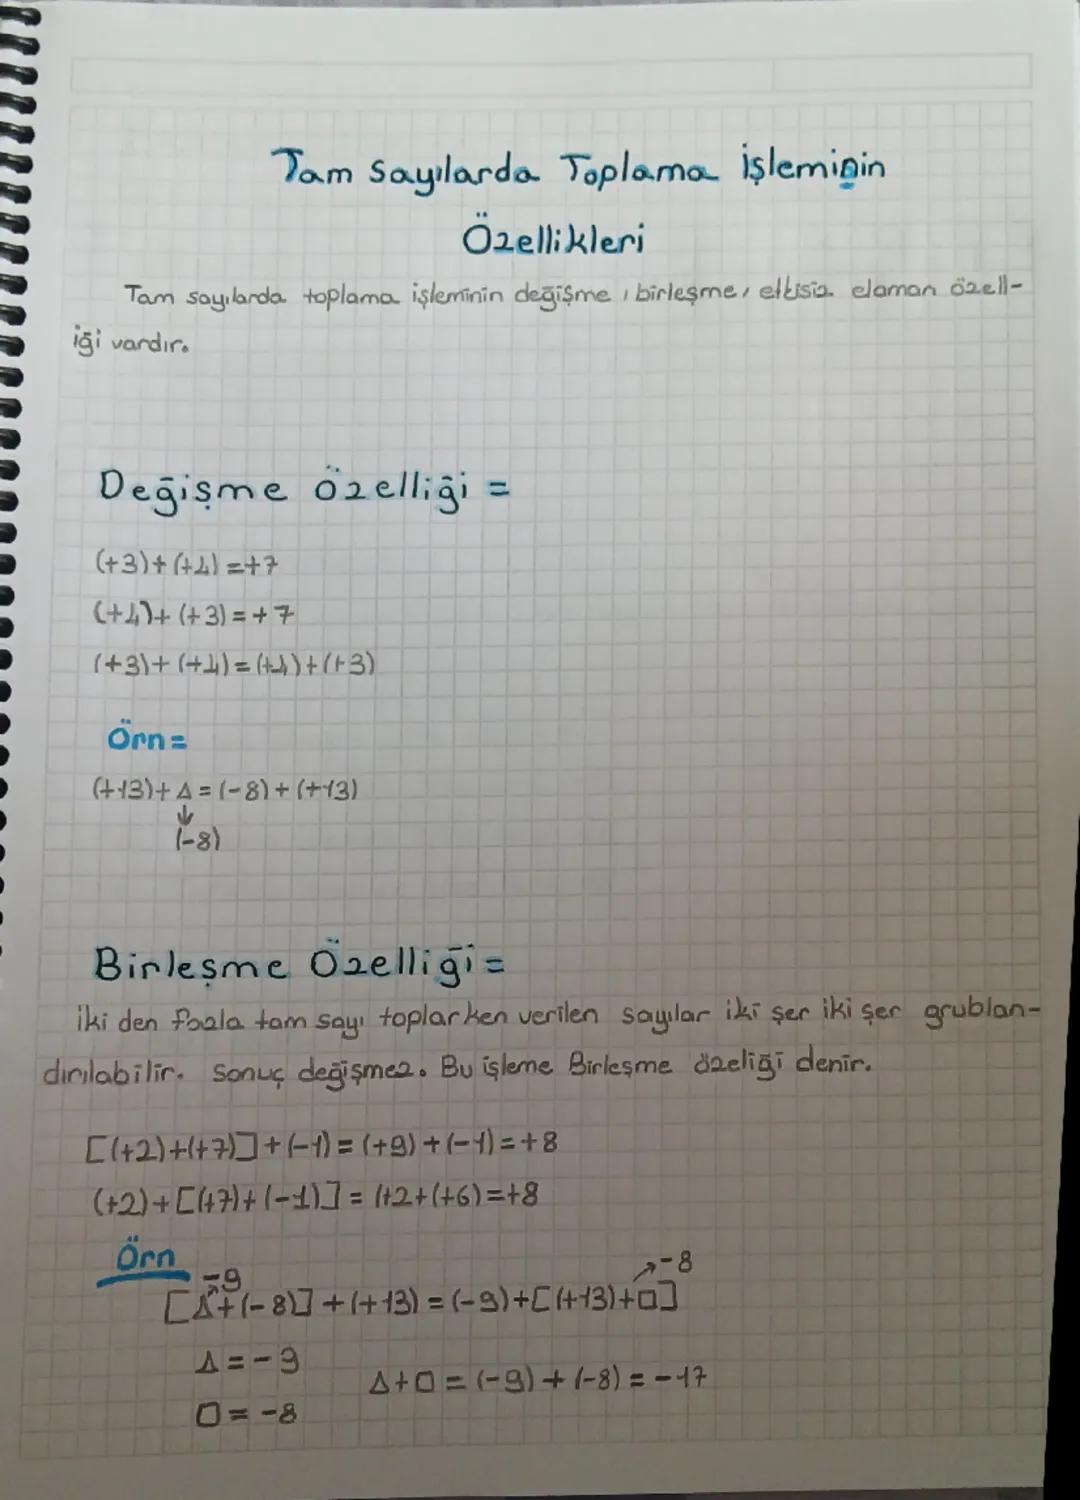 Tam sayılarda Toplama işleminin
Özellikleri
Tam sayılarda toplama işleminin değişme, birleşme, etkisiz elaman özell-
iği vardır.
Değişme özelliği =
(+3)+(+4)=+7
(+4)+(+3)=+7
(+3)+(+4)=(+4)+(+3)
Örn=
(+13)+Δ=(-8)+(+13)
↓
(-8)
Birleşme Özelliği=
iki den fazla tam sayı toplarken verilen sayılar iki şer iki şer grublan-
dırılabilir. Sonuç değişmez. Bu işleme Birleşme özeliği denir.
[(+2)+(+7)]+(-1)=(+9)+(-1)=+8
(+2)+[(+7)+(-1)]=(+2+(+6)=+8
Örn
-9 -8
[Δ+(-8)]+(+13)=(-9)+[(+13)+□]
Δ=-9
Δ+□=(-9)+(-8)=-17
□=-8